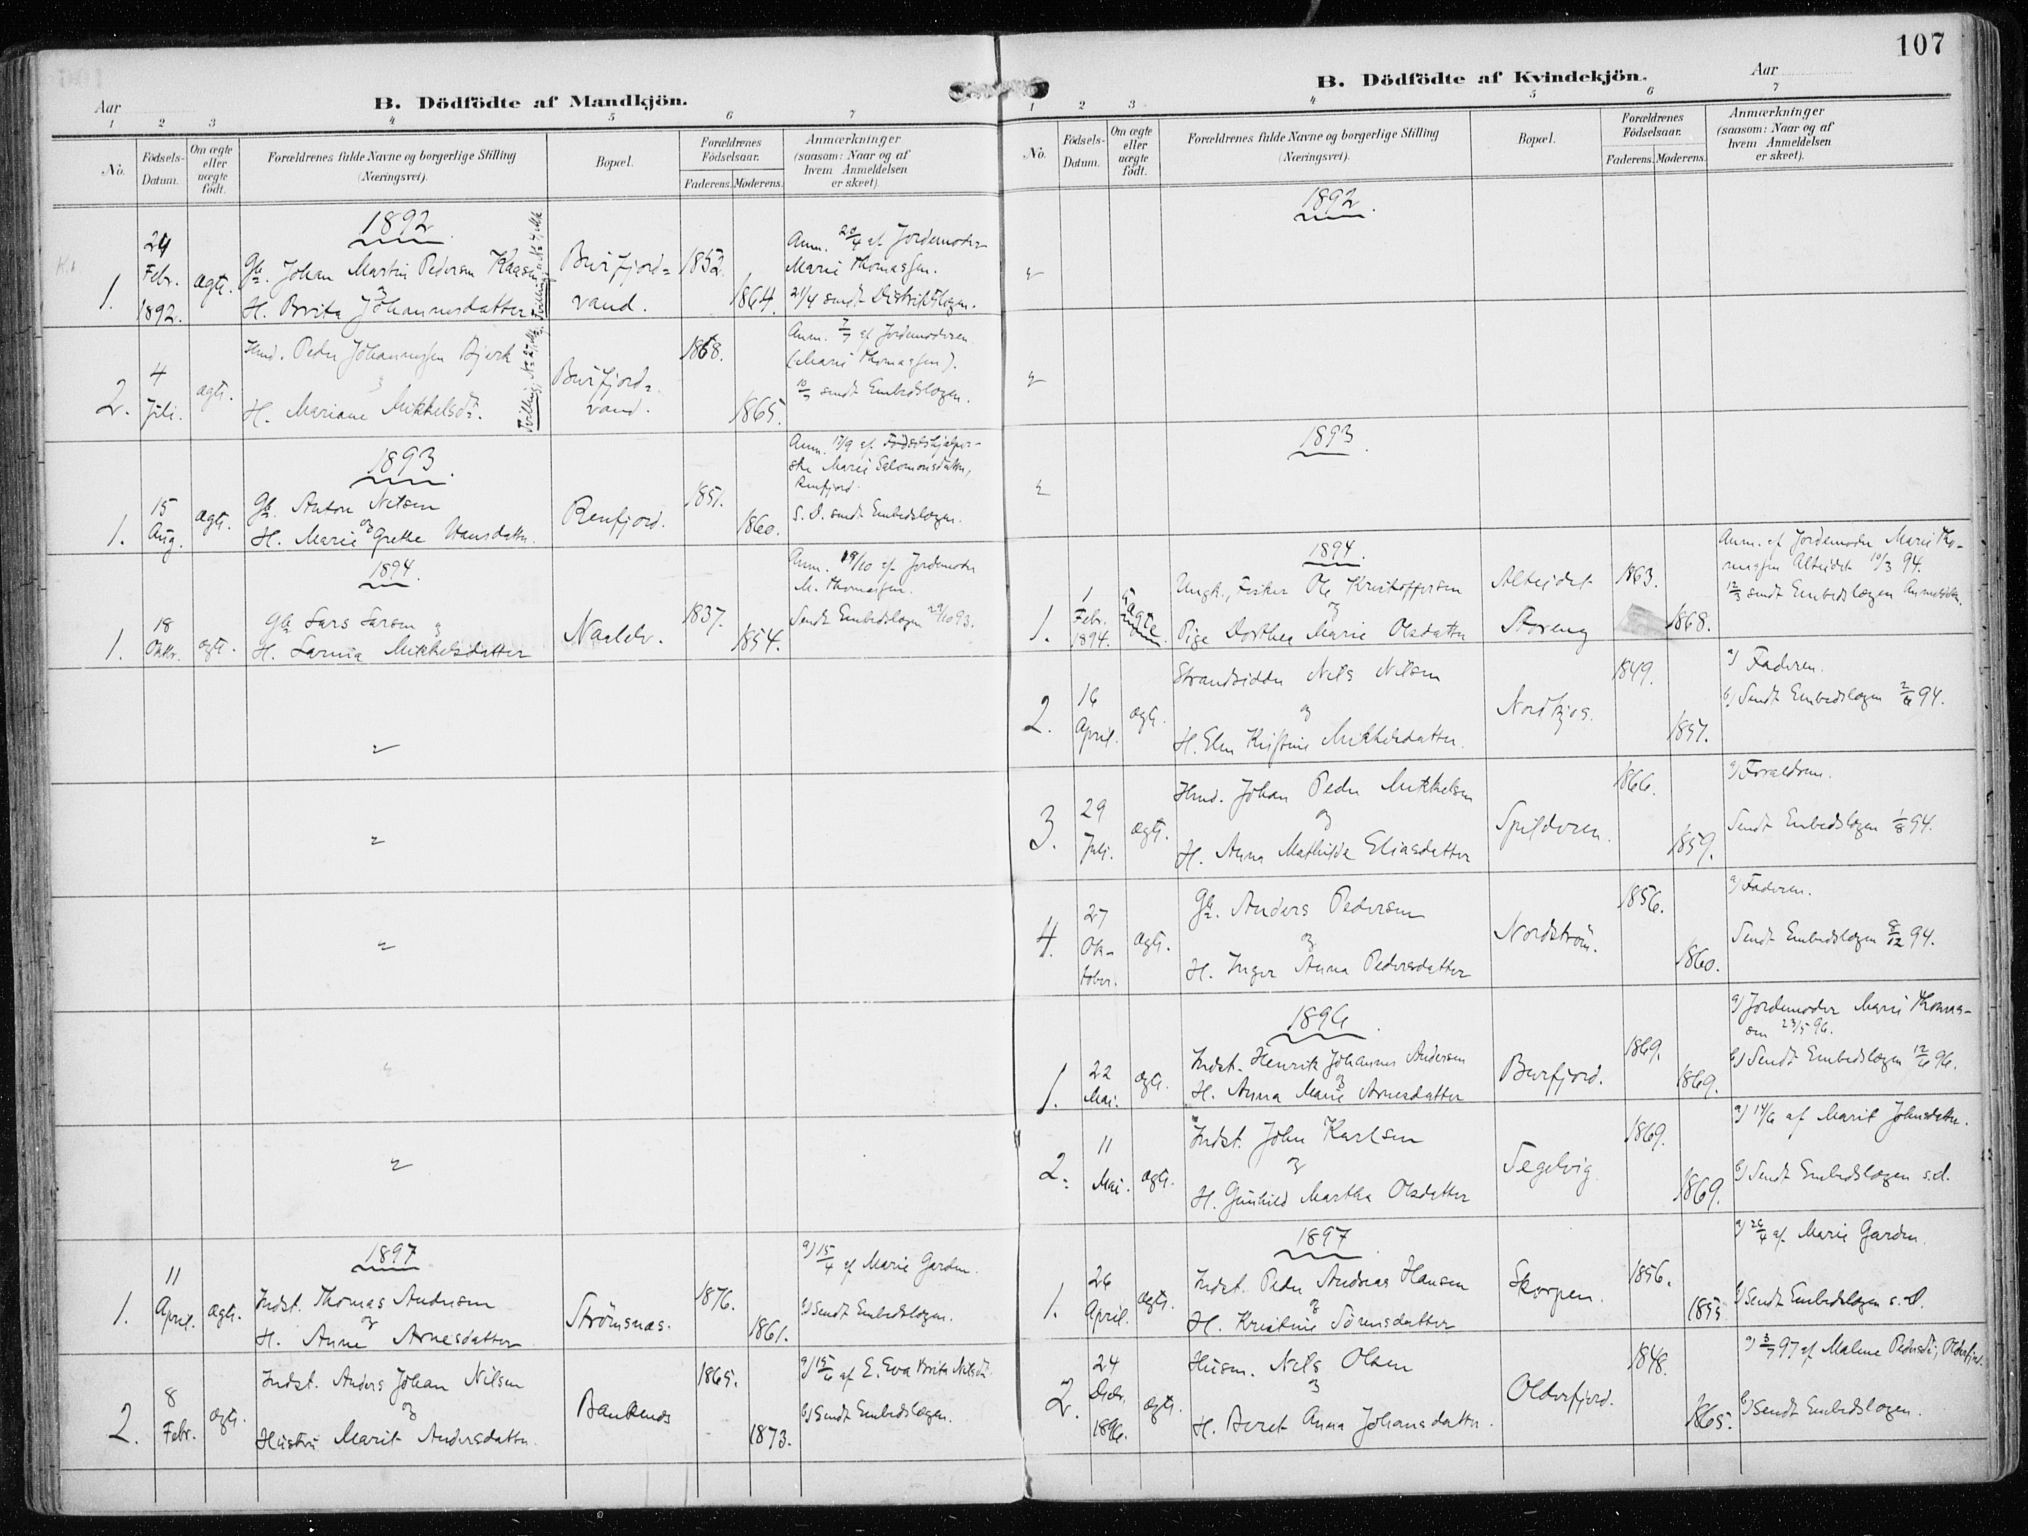 107
Aar
B. Dödfödte af Mandkjön.
1 2 3 4 5 6 7
No.
Födsels-
Datum.
Om ægte
eller
uægte
födt.
Forældrenes fulde Navne og borgerlige Stilling
(Næringsvei).
Bopæl.
Forældrenes
Födselsaar.
Faderens. Moderens.
Anmærkninger
(saasom: Naar og af
hvem Anmeldelsen
er skeet).
1892
1.
24
Febr.
1892.
ægte.
Gb. Johan Martin Pedersen
og
H. Brita Johannesdatter
Burfjord-
vand.
1852.
1864.
Anm. 20/4 af Jordemoder
Marie Thomassen.
21/4 sendt Distriktslægen.
2.
4
Juli.
ægte.
Peder Johannessen Bjerk
og
H. Mariane Mikkelsdtr.
Burfjord-
vand.
1868.
1865.
Anm. 7/7 af Jordemoderen
(Marie Thomassen).
10/7 sendt Embedslægen.
1893
1.
15
Aug.
ægte.
Gb. Anton Nilsen
og
H. Marie Grethe Hansdatter.
Renfjord.
1851.
1860.
Anm. 17/9 af Födselshjælper-
ske Marie Salomonsdatter,
Renfjord.
S. D. sendt Embedslægen.
1894.
1.
18
Oktbr.
ægte.
Gb Lars Larsen og
H. Mikkelsdatter
Naalelv.
1837.
1854.
Anm. 19/10 af Jordemoder
M. Thomassen.
Sendt Embedslægen 93.
1897
1.
11
April.
ægte.
Indst. Thomas Andersen
og
H. Anne Arnesdatter
Strömsnæs.
1876.
1861.
a) 15/4 af Marie Garden.
b) Sendt Embedslægen.
2.
8
Febr.
ægte.
Indst. Anders Johan Nilsen
og
Hustru Marit Andersdatter.
Bankenæs
1865.
1873.
a) 15/6 af E. Eva Brita Nilsdtr.
b) Sendt Embedslægen.
B. Dödfödte af Kvindekjön.
Aar
1 2 3 4 5 6 7
No.
Födsels-
Datum.
Om ægte
eller
uægte
födt.
Forældrenes fulde Navne og borgerlige Stilling
(Næringsvei).
Bopæl.
Forældrenes
Födselsaar.
Faderens. Moderens.
Anmærkninger
(saasom: Naar og af
hvem Anmeldelsen
er skeet).
1892.
1893.
1894.
1.
1
Febr.
1894.
uægte.
Ungk., Fisker Ole Kristoffersen
og
Pige Dorthea Marie Olsdatter
Alteidet
Storeng
1863.
1868.
Anm. af Jordemoder Marie Tho-
massen Alteidet 10/3 94.
12/3 sendt Embedslægen
2.
16
April.
ægte.
Strandsidder Nils Nilsen
og
H. Elen Kristine Mikkelsdatter.
Nordkjos.
1849.
1857.
a) Faderen.
b) Sendt Embedslægen 2/6 94.
3.
29
Juli.
ægte.
Johan Peder Mikkelsen
og
H. Anna Mathilde Eliasdatter
Spildren.
1866.
1859.
a) Forældrene.
Sendt Embedslægen 1/8 94.
4.
27
Ok-
tober.
ægte.
Gb. Anders Pedersen
og
H. Inger Anna Pedersdatter
Nordström.
1856.
1860.
a) Faderen.
Sendt Embedslægen 8/12 94.
1896.
1.
22
Mai.
ægte.
Indst. Henrik Johannes Andersen
og
H. Anna Marie Arnesdatter
Burfjord.
1869.
1869.
a) Jordemoder Marie Thomas-
sen 23/5 96.
b) Sendt Embedslægen 12/6 96.
2.
11
Mai.
ægte.
Indst. John Karlsen
og
H. Gunhild Martha Olsdatter
Segelvig.
1869.
1869.
a) 14/6 af Marit Johnsdatter.
b) Sendt Embedslægen s.d.
1897
1.
26
April.
ægte.
Indst. Peder Andreas Hansen
og
H. Kristine Sörensdatter
Skorpen.
1856.
1855
a) 26/4 af Marie Garden.
b) Sendt Embedslægen s. D.
2.
24
Decbr.
1896.
ægte.
Husm. Nils Olsen
og
H. Beret Anna Johansdatter.
Olderfjord.
1848.
1865.
a) 97 af Malene Pedersdtr, Olderfjord.
b) Sendt Embedslægen.